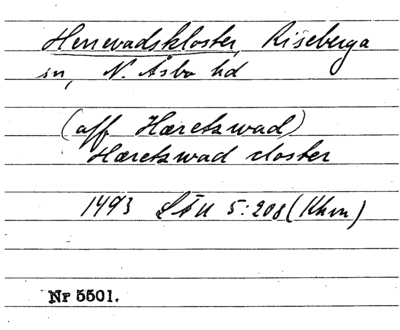 Herrevadskloster, Riseberga
sn, N. Åsbo hd
(aff Hæretzwad)
Hæretzwad closter
1493 LÅU 5:208 (Khvn)
Nr 5501.